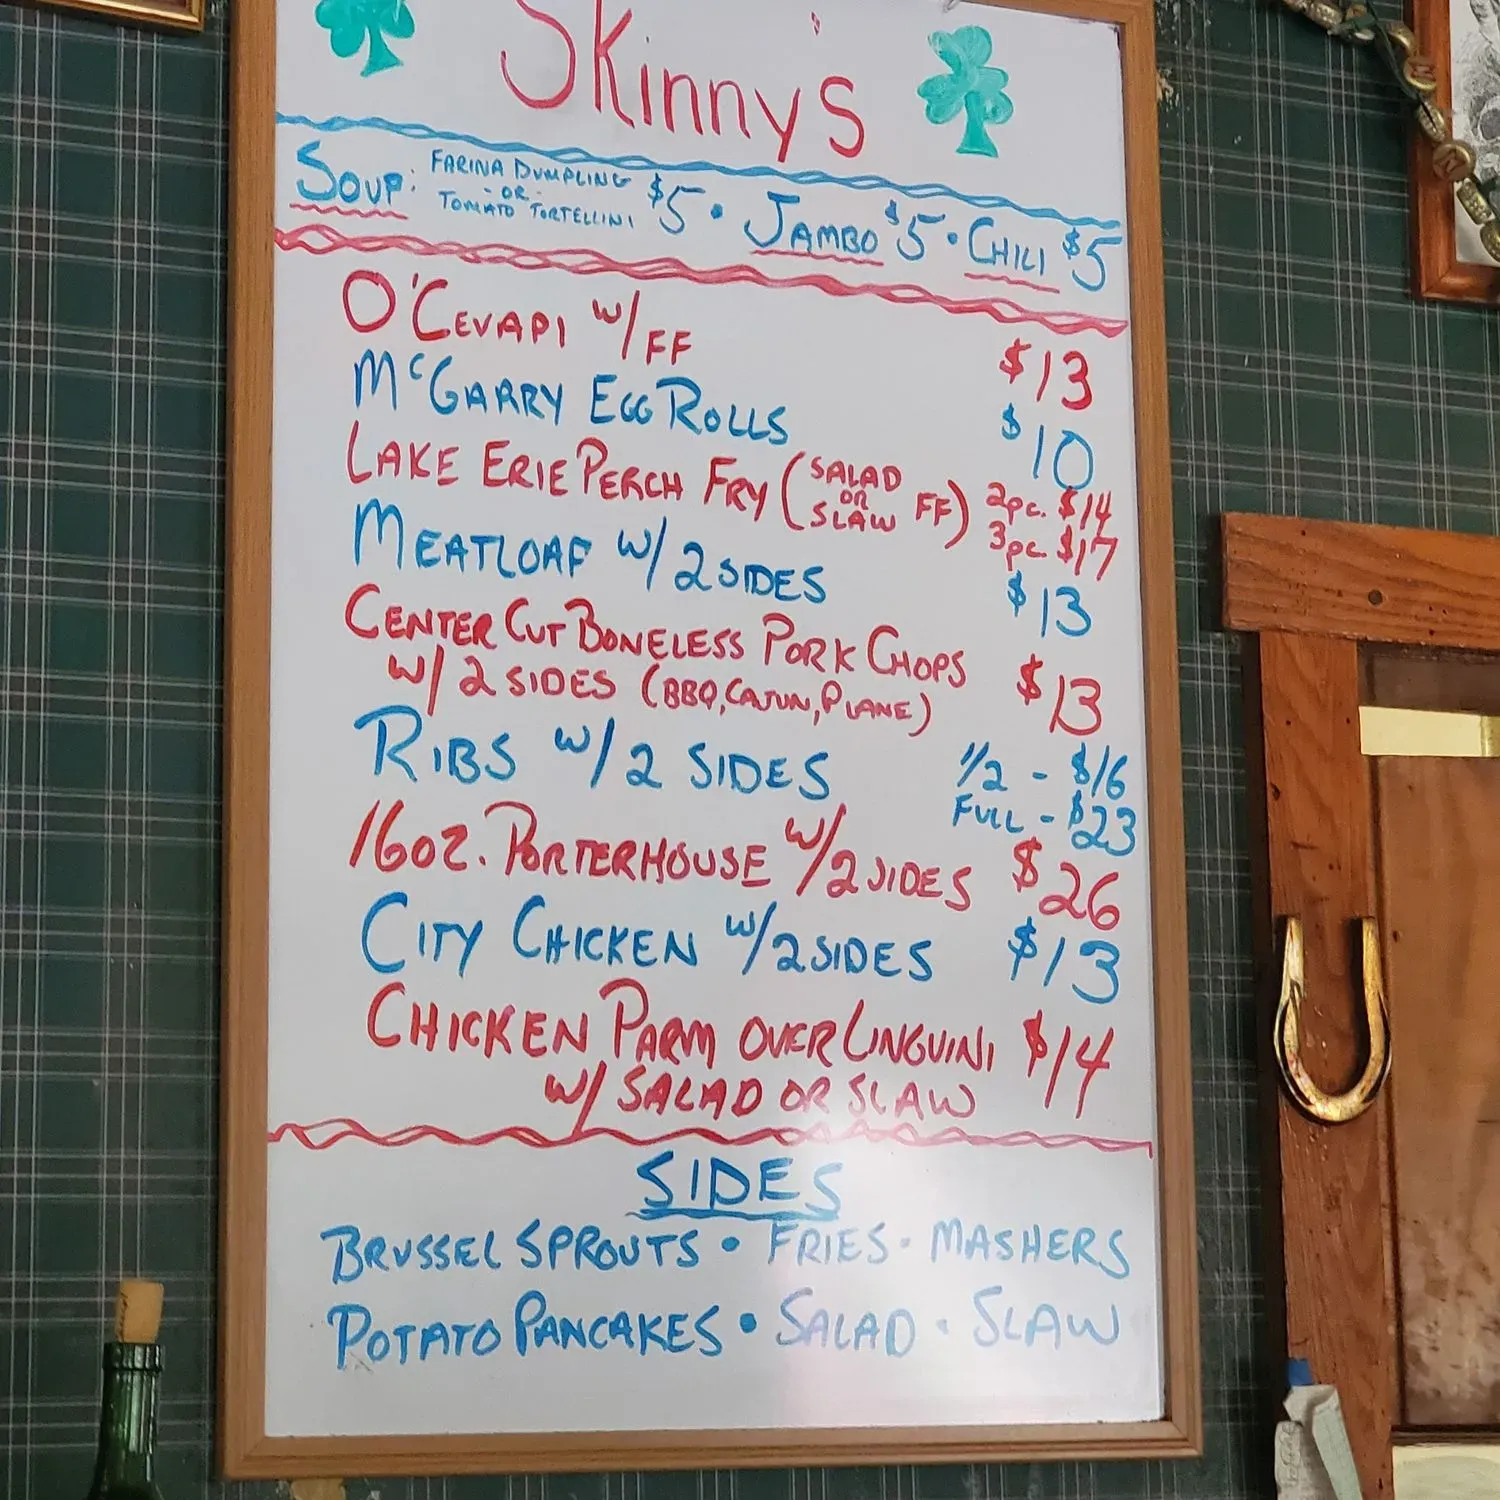 Skinny's
SOUP: FARINA DUMPLING -OR- TOMATO TORTELLINI $5 • JAMBO $5 • CHILI $5
O'CEVAPI W/FF $13
McGARRY EGG ROLLS $10
LAKE ERIE PERCH FRY (SALAD OR SLAW FF) 2pc. $14
3pc. $17
MEATLOAF W/2 SIDES $13
CENTER CUT BONELESS PORK CHOPS
W/2 SIDES (BBQ, CAJUN, PLANE) $13
RIBS W/2 SIDES 1/2 - $16
FULL - $23
16OZ. PORTERHOUSE W/2 SIDES $26
CITY CHICKEN W/2 SIDES $13
CHICKEN PARM OVER LINGUINI $14
W/SALAD OR SLAW
SIDES
BRUSSEL SPROUTS • FRIES • MASHERS
POTATO PANCAKES • SALAD • SLAW